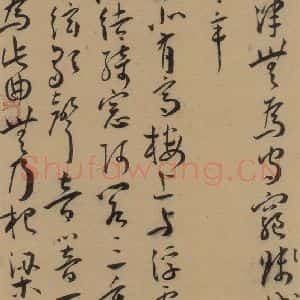 津無為守窮賤
辛
北有高樓上與浮雲
結綺窓阿閣三重
弦歌聲音響一
為此曲無乃杞梁
Shufawang.CN